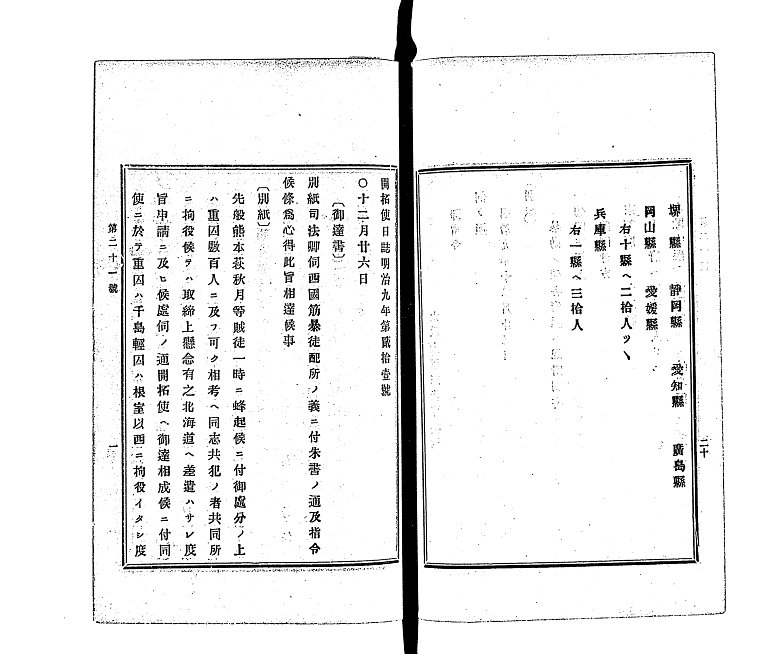 堺縣 靜岡縣 愛知縣 廣島縣
岡山縣 愛媛縣
右十縣ヘ二拾人ツヽ
兵庫縣
右一縣ヘ三拾人
二十
開拓使日誌明治九年第貳拾壹號
〇十二月廿六日
〔御達書〕
別紙司法卿伺西國筋暴徒配所ノ義ニ付朱書ノ通及指令
候條爲心得此旨相達候事
〔別紙〕
先般熊本萩秋月等賊徒一時ニ蜂起候ニ付御處分ノ上
ハ重囚數百人ニ及フ可ク相考ヘ同志共犯ノ者共同所
ニ拘役候テハ取締上懸念有之北海道ヘ差遣ハサレ度
旨申請ニ及ヒ候處伺ノ通開拓使ヘ御達相成候ニ付同
使ニ於テ重囚ハ千島輕囚ハ根室以西ニ拘役イタシ度
第二十一號 一